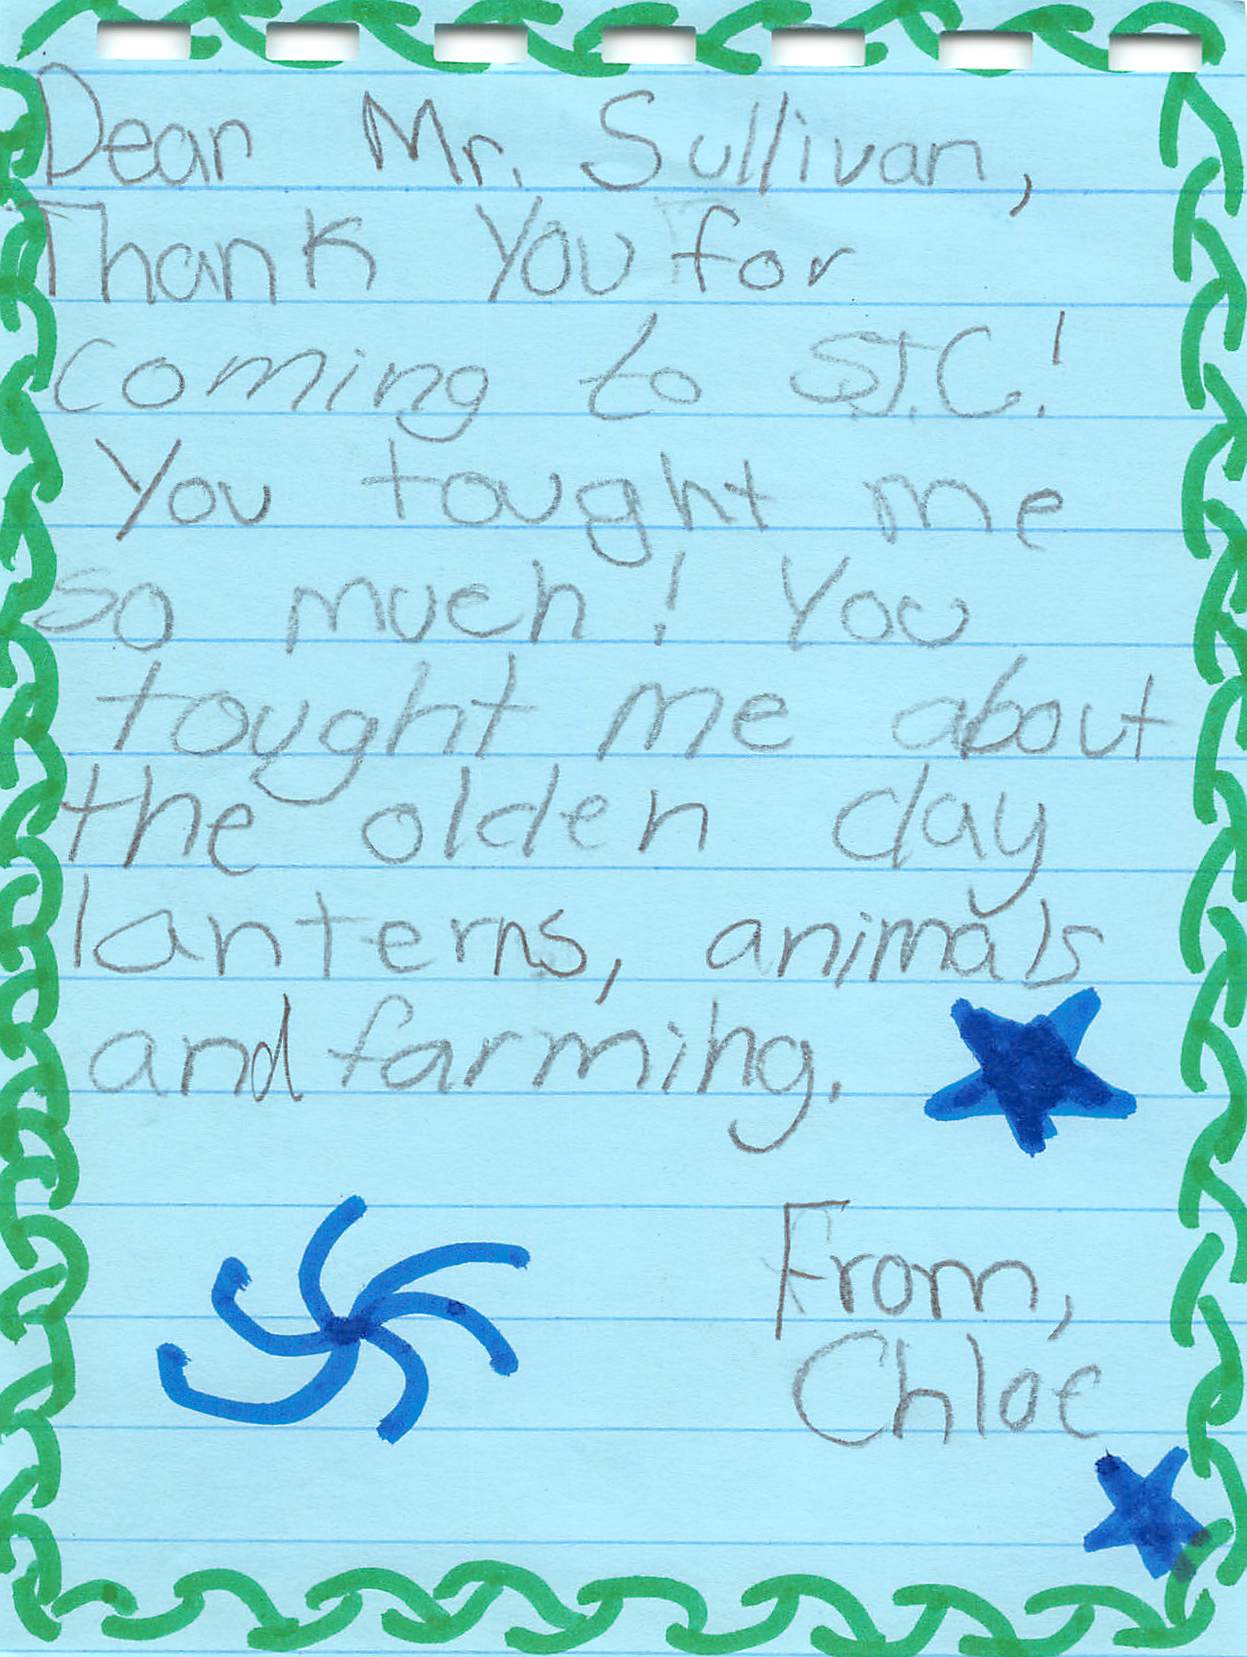 Dear Mr. Sullivan,
Thank You for
coming to S.T.C.!
You tought me
so much! You
tought me about
the olden day
lanterns, animals
and farming.
From,
Chloe